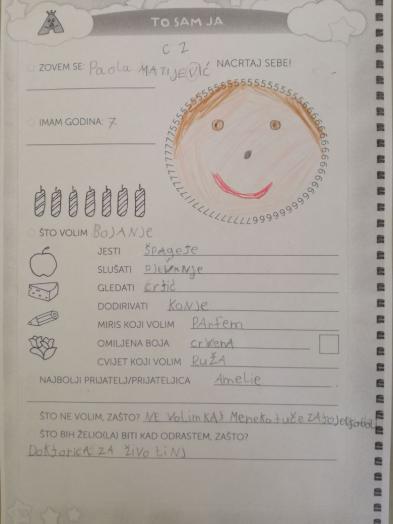 TO SAM JA
C 2
ZOVEM SE: Paola MATIJEVIĆ NACRTAJ SEBE!
IMAM GODINA: 7
ŠTO VOLIM BOJANJE
JESTI ŠPAGEJE
SLUŠATI PJEVANJE
GLEDATI crtić
DODIRIVATI KONJE
MIRIS KOJI VOLIM PArfem
OMILJENA BOJA crvenA
CVIJET KOJI VOLIM RUŽA
NAJBOLJI PRIJATELJ/PRIJATELJICA Amelie
ŠTO NE VOLIM, ZAŠTO? NE VOLIM KAJ MENE KO TUČE ZATO JE
ŠTO BIH ŽELIO(LA) BITI KAD ODRASTEM, ZAŠTO?
DOKTORICA ZA ŽIVOTINJ